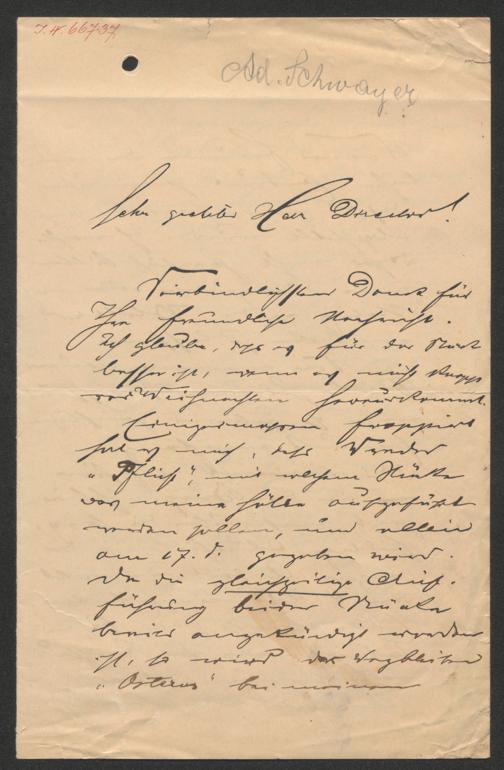 I.N. 66737
Ad. Schwayer
Sehr geehrter Herr Director!
Verbindlichsten Dank für
Ihre freundliche Nachricht.
Ich glaube, daß es für das Stück
besser ist, wenn es nicht knapp
vor Weihnachten herauskommt.
Einigermassen frappiert
hat es mich, daß
"Pflicht", mit welchem Stücke
das meine hätte aufgeführt
werden sollen, nun allein
am 17. d. gegeben wird.
Da die gleichzeitige Auf-
führung beider Stücke
bereits angekündigt worden
ist, so wird das Wegbleiben
bei meinem